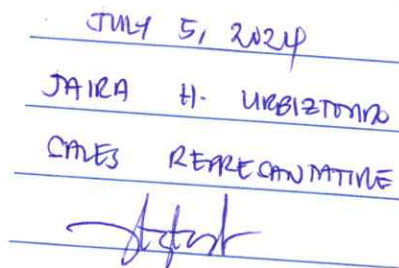 JULY 5, 2024
JAIRA H. URBIZTONDO
SALES REPRESANTATIVE